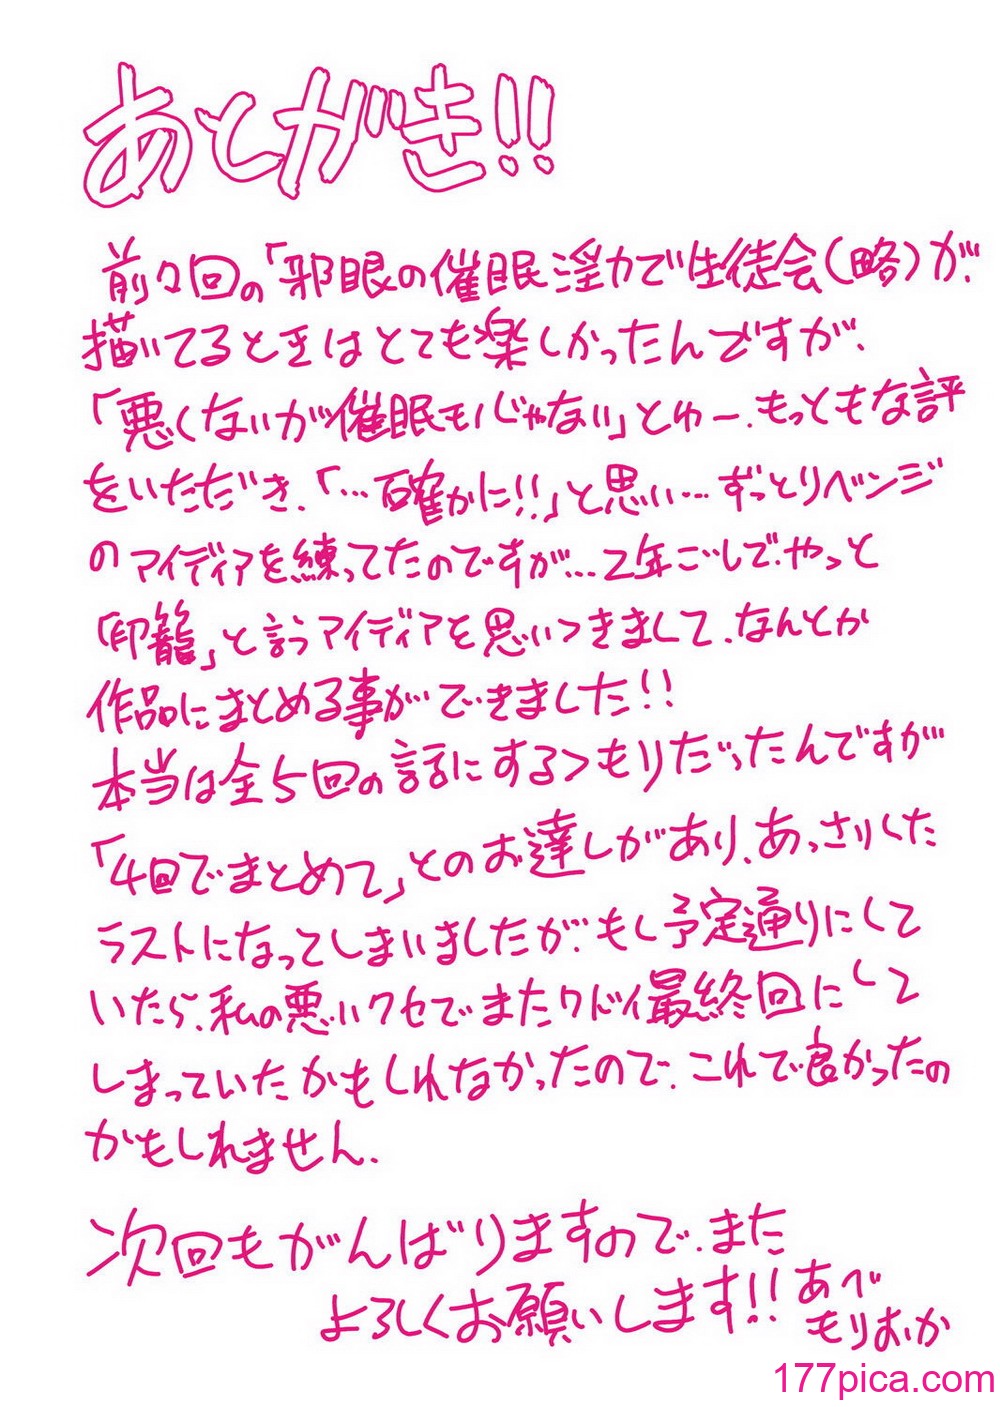 あとがき!!
前々回の「邪眼の催眠淫力で生徒会(略)が、
描いてるときはとても楽しかったんですが、
「悪くないが催眠モノじゃない」とゆー、もっともな評
をいただき、「…確かに!!」と思い…ずっとリベンジ
のアイディアを練ってたのですが…2年ごしで、やっと
「印籠」と言うアイディアを思いつきまして、なんとか
作品にまとめる事ができました!!
本当は全5回の話にするつもりだったんですが
「4回でまとめて」とのお達しがあり、あっさりした
ラストになってしまいましたが、もし予定通りにして
いたら、私の悪いクセでまたクドイ最終回にして
しまっていたかもしれなかったので、これで良かったの
かもしれません、
次回もがんばりますので、また
よろしくお願いします!!
あべ
もりおか
177pica.com